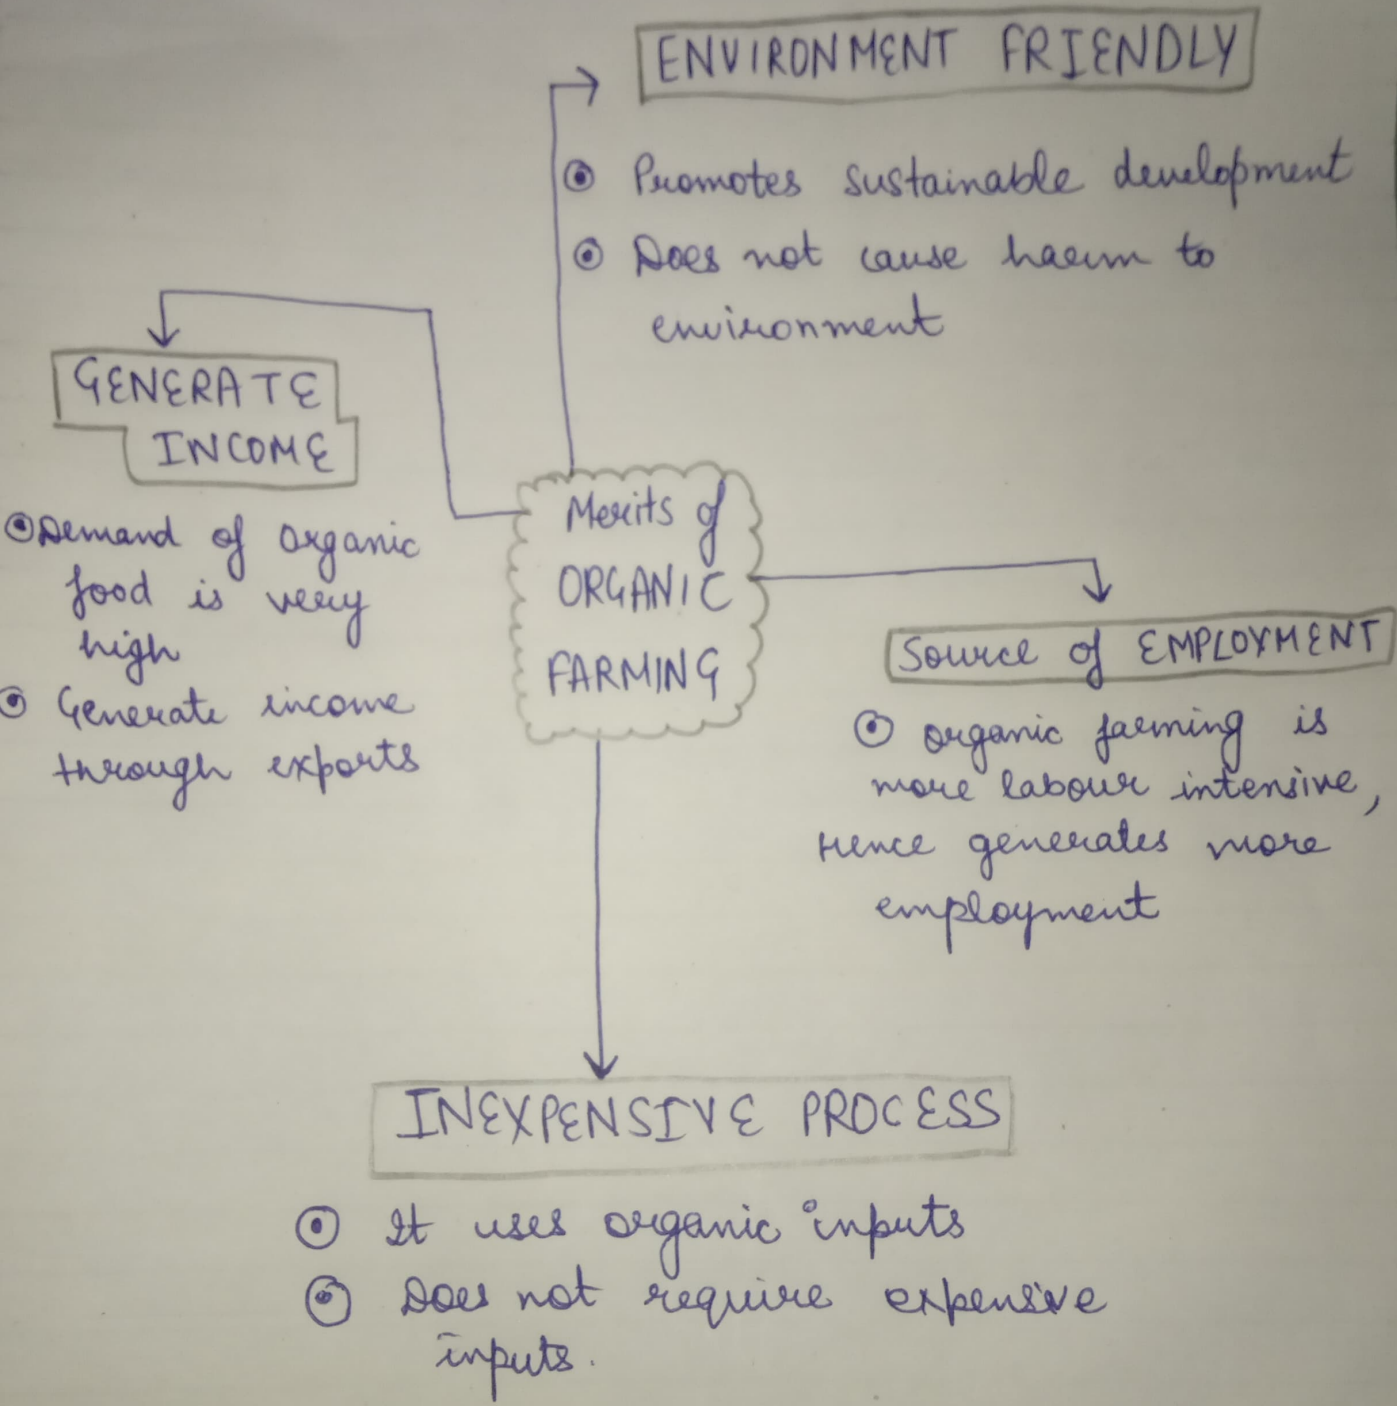 ENVIRONMENT FRIENDLY
Promotes sustainable development
Does not cause harm to
environment
GENERATE
INCOME
Demand of organic
food is very
high
Generate income
through exports
Merits of
ORGANIC
FARMING
Source of EMPLOYMENT
organic farming is
more labour intensive,
Hence generates more
employment
INEXPENSIVE PROCESS
It uses organic inputs
Does not require expensive
inputs.